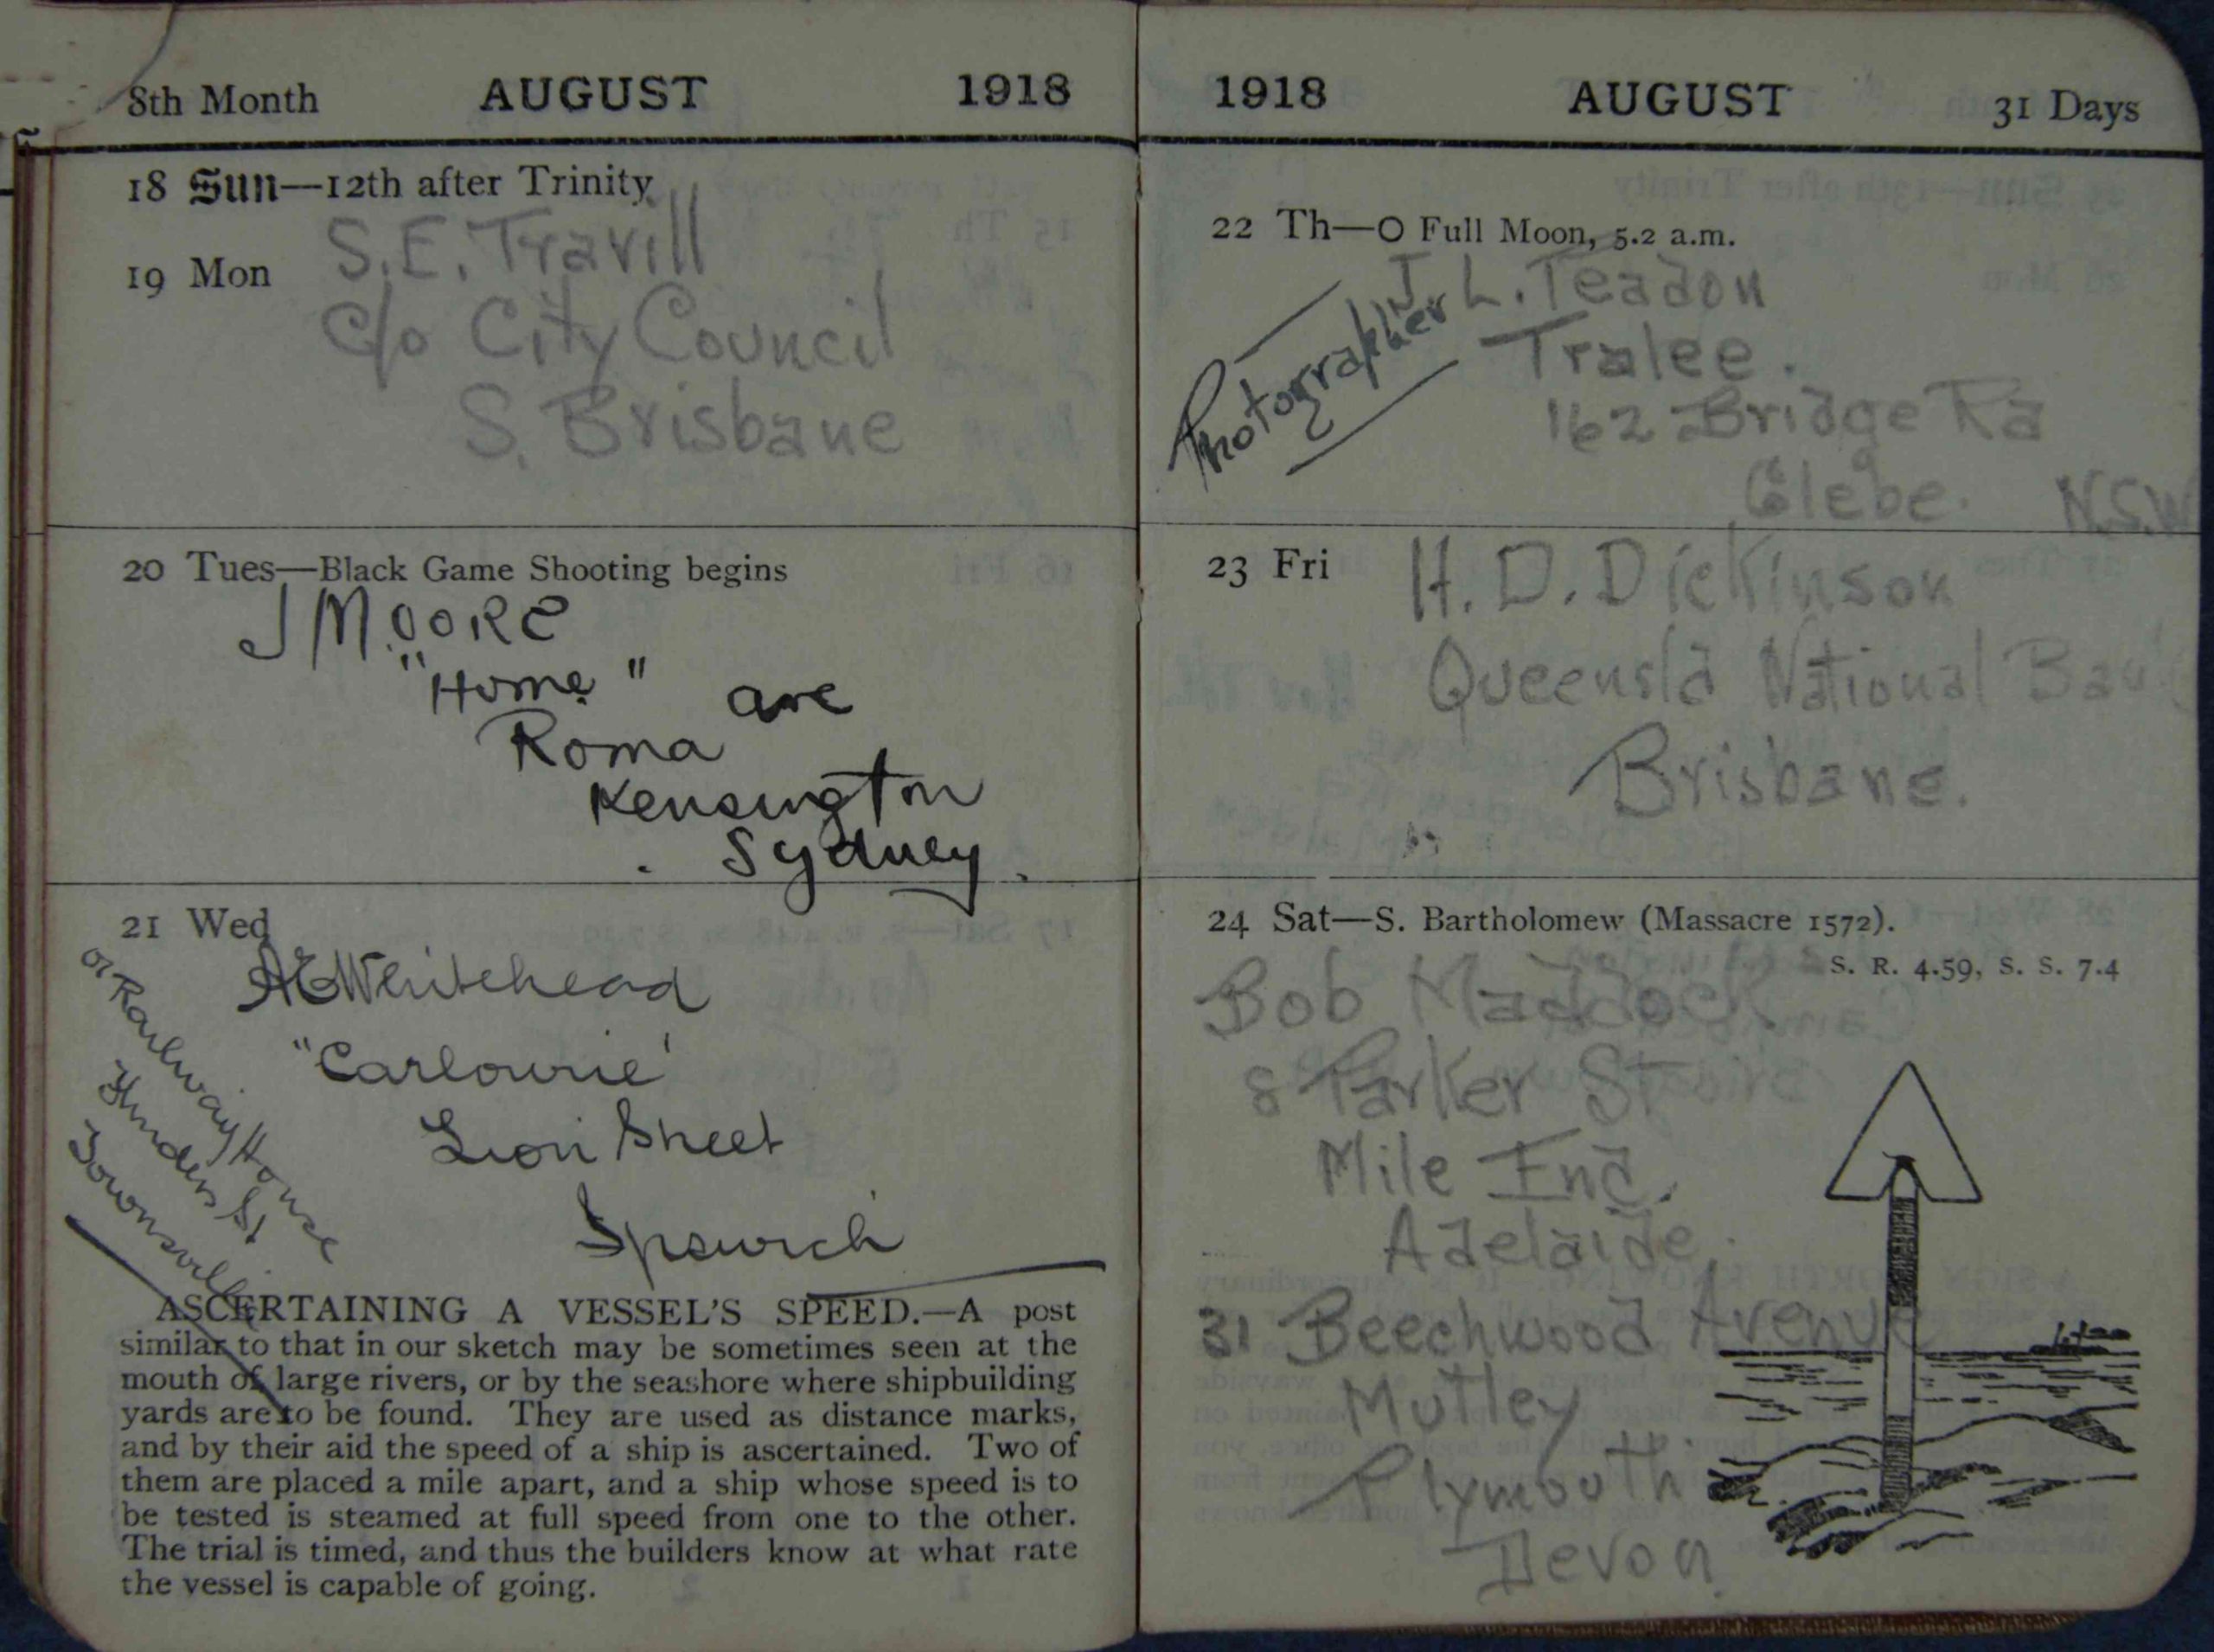 8th Month AUGUST 1918
18 Sun—12th after Trinity
19 Mon
S.E. Travill
c/o City Council
S. Brisbane
20 Tues—Black Game Shooting begins
J MOORE
"Home"
ave
Roma
Kensington
Sydney.
21 Wed
AE Whitehead
"Carlowrie'
Lion Street
Ipswich
or Railway House
Flinders St
Townsville
ASCERTAINING A VESSEL'S SPEED.—A post
similar to that in our sketch may be sometimes seen at the
mouth of large rivers, or by the seashore where shipbuilding
yards are to be found. They are used as distance marks,
and by their aid the speed of a ship is ascertained. Two of
them are placed a mile apart, and a ship whose speed is to
be tested is steamed at full speed from one to the other.
The trial is timed, and thus the builders know at what rate
the vessel is capable of going.
1918 AUGUST 31 Days
22 Th—O Full Moon, 5.2 a.m.
Photographer
J. L. Teadon
Tralee.
162 Bridge Rd
Glebe. N.S.W
23 Fri
H. D. Dickinson
Queensld National Bank
Brisbane.
24 Sat—S. Bartholomew (Massacre 1572).
S. R. 4.59, S. S. 7.4
Bob Maddock
8 Parker St
Mile End.
Adelaide.
31 Beechwood Avenue
Mutley
Plymouth
Devon.